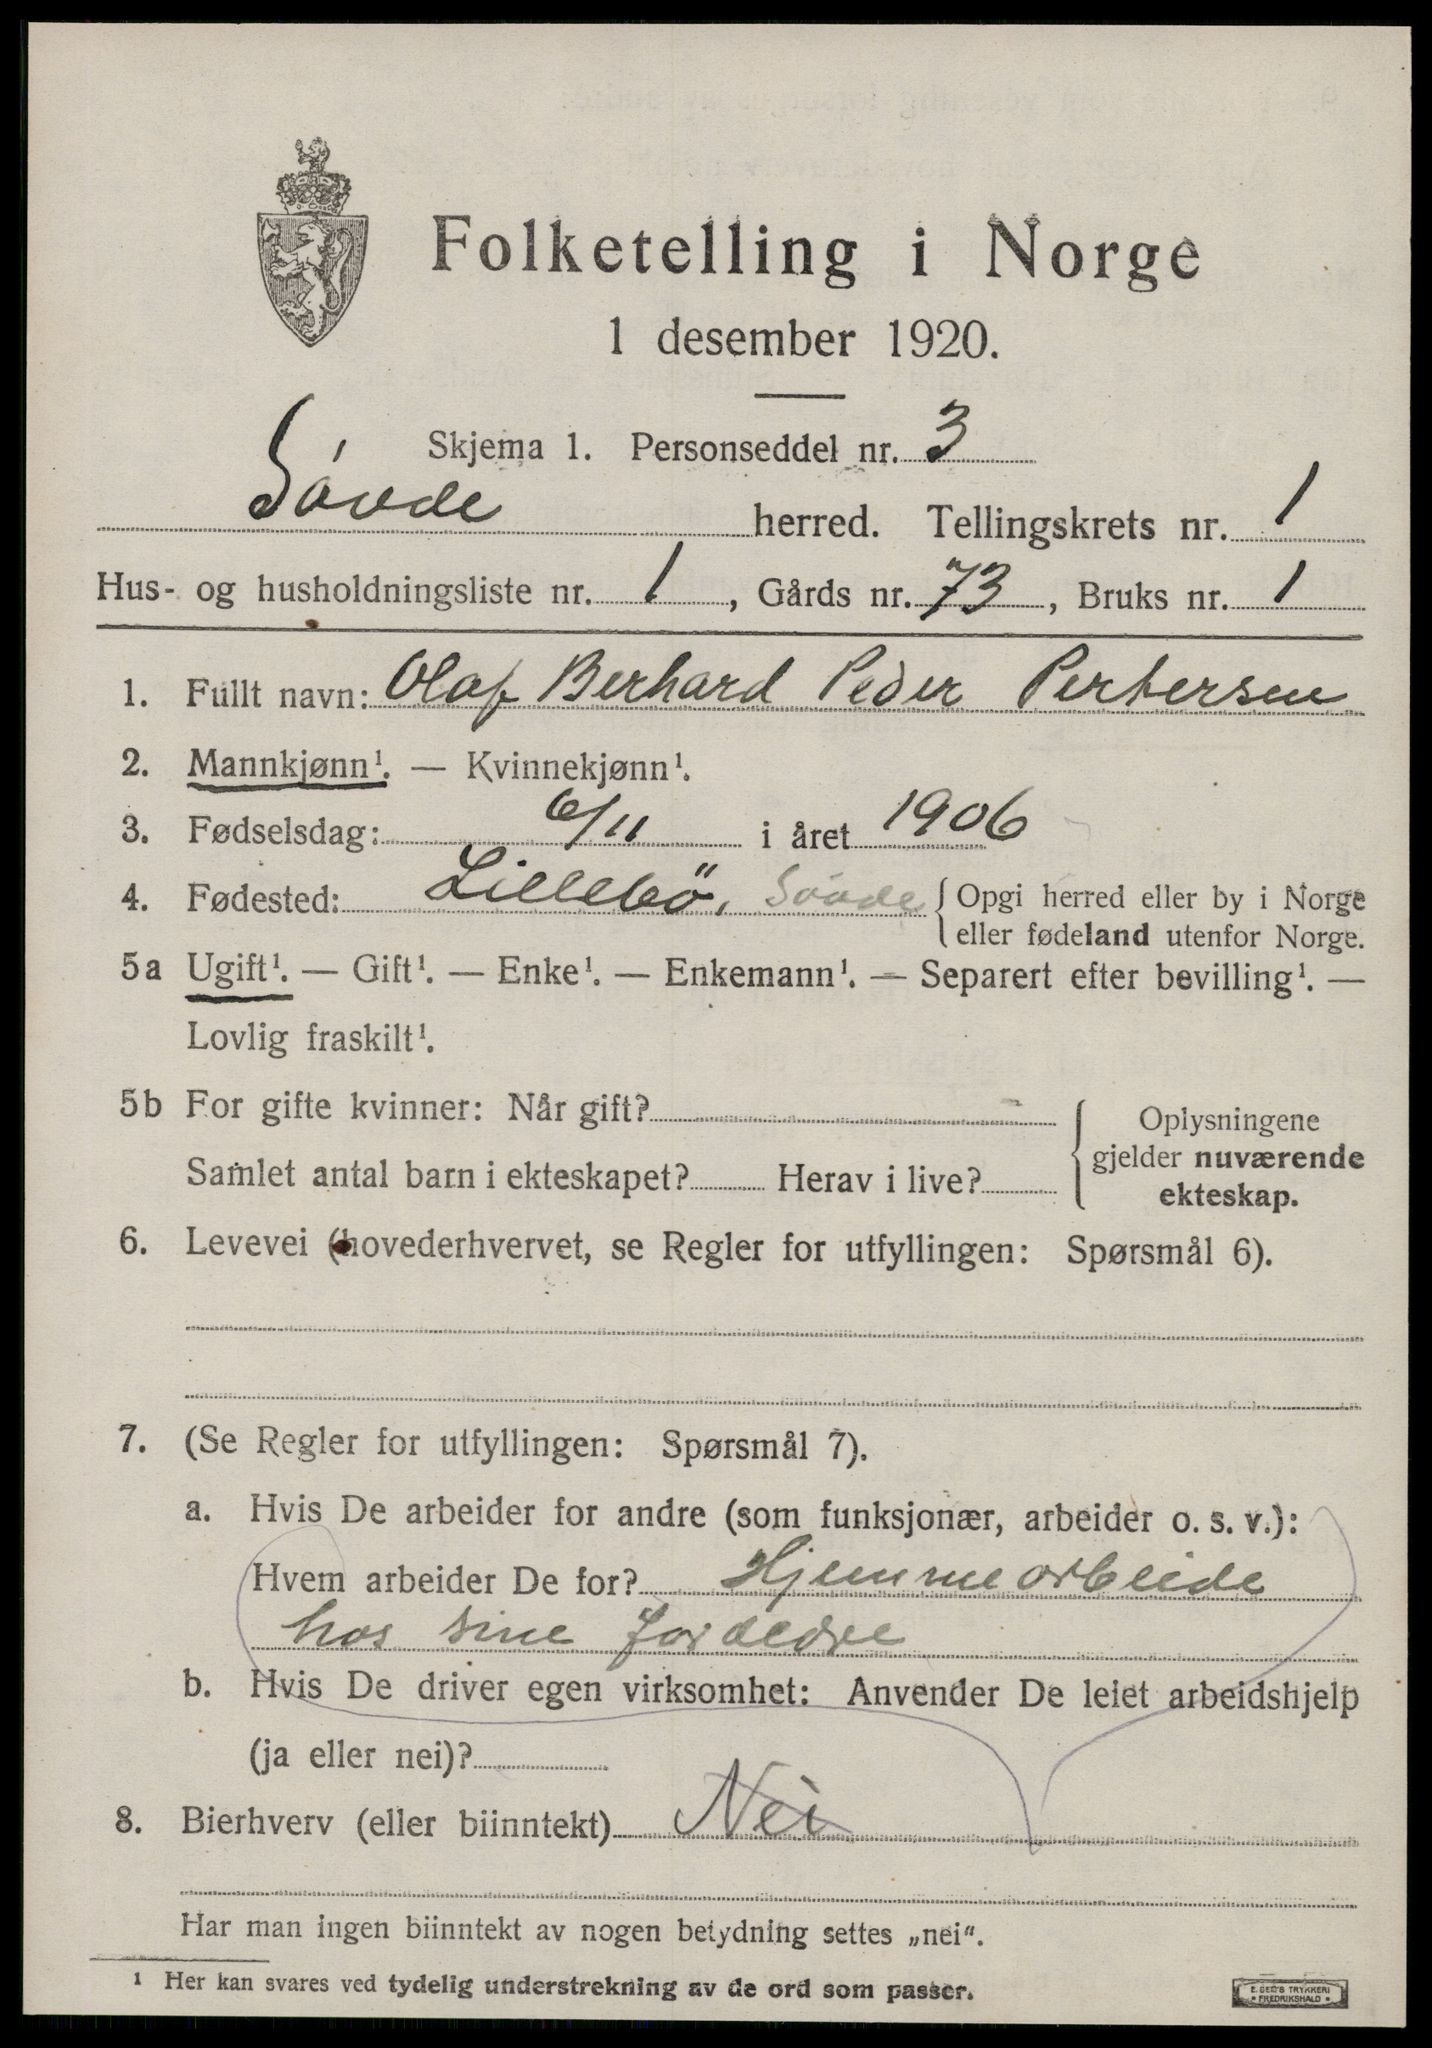 Folketelling i Norge
1 desember 1920.
Skjema 1. Personseddel nr. 3
Søvde herred. Tellingskrets nr. 1
Hus- og husholdningsliste nr. 1, Gårds nr. 73, Bruks nr. 1
1. Fullt navn: Olaf Berhard Peder Pertersen
2. Mannkjønn¹. — Kvinnekjønn¹.
3. Fødselsdag: 6/11 i året 1906
4. Fødested: Lillebö, Søvde { Opgi herred eller by i Norge
eller fødeland utenfor Norge.
5a Ugift¹. — Gift¹. — Enke¹. — Enkemann¹. — Separert efter bevilling¹. —
Lovlig fraskilt¹.
5b For gifte kvinner: Når gift? { Oplysningene
gjelder nuværende
Samlet antal barn i ekteskapet? Herav i live? ekteskap.
6. Levevei (hovederhvervet, se Regler for utfyllingen: Spørsmål 6).
7. (Se Regler for utfyllingen: Spørsmål 7).
a. Hvis De arbeider for andre (som funksjonær, arbeider o. s. v.):
Hvem arbeider De for? Hjemmearbeide
hos sine foreldre
b. Hvis De driver egen virksomhet: Anvender De leiet arbeidshjelp
(ja eller nei)?
8. Bierhverv (eller biinntekt) Nei
Har man ingen biinntekt av nogen betydning settes „nei“.
¹ Her kan svares ved tydelig understrekning av de ord som passer.
E. SEM'S TRYKKERI
• FREDRIKSHALD •